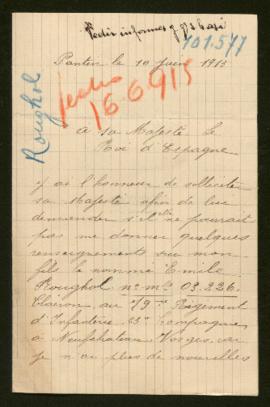 Pedir informes y gracias
101.577
Pantin le 10 Juin 1915
Roughol
Pedido
16-6-915
à sa Majesté le
Roi d'Espagne
J'ai l'honneur de solliciter
sa Majesté afin de lui
demander s'il elle ne pourrait
pas me donner quelques
renseignements sur mon
fils le nommé Emile
Roughol n° mle 03.226.
Clairon au 79me Régiment
d'Infanterie Compagnie
à Neufchateau Vosges, car
je n'ai plus de nouvelles